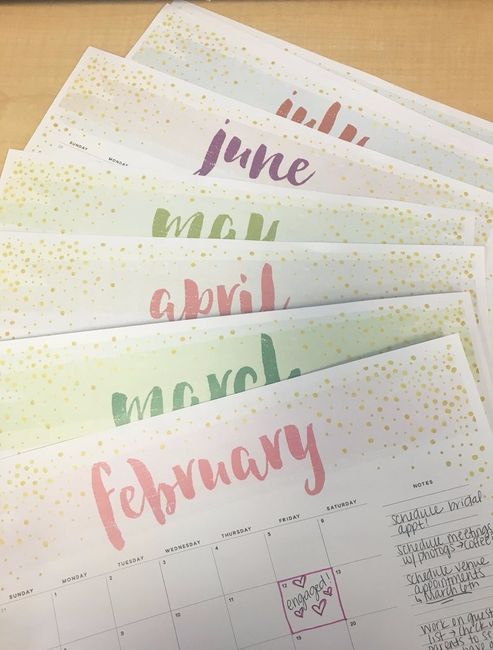 july
june
SUNDAY MONDAY
may
april
march
february
NOTES
SUNDAY MONDAY TUESDAY WEDNESDAY THURSDAY FRIDAY SATURDAY
schedule bridal
appt!
schedule meetings
w/ photogs → coffee
schedule venue
appointments
↳ March 6th
31 1 2 3 4 5 6
12 13
engaged!
work on guest
list → check w/
parents to see
19 20